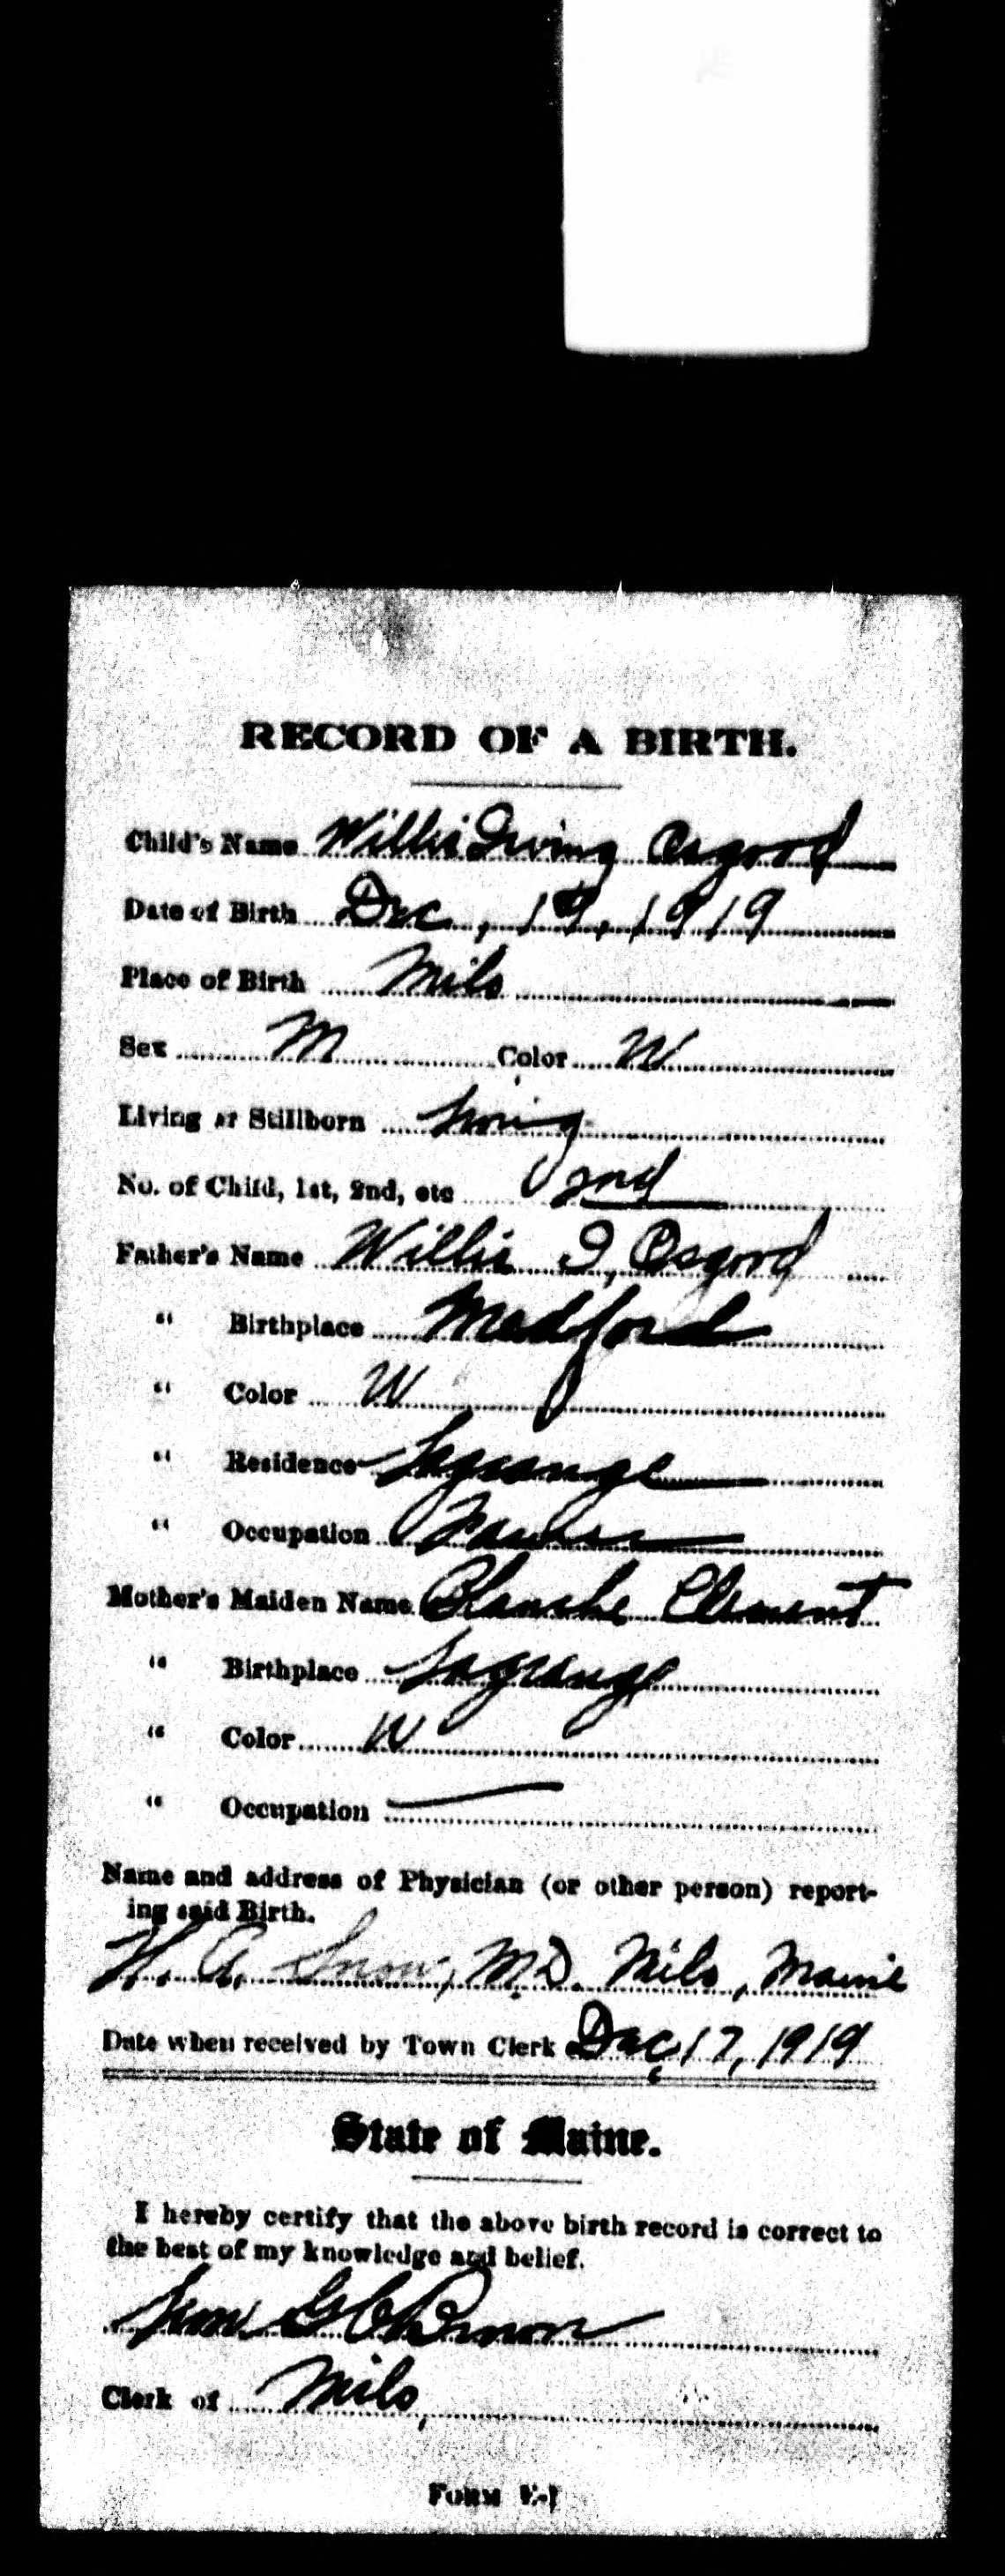 RECORD OF A BIRTH.
Child's Name Willis Irving Osgood
Date of Birth Dec, 19, 1919
Place of Birth Milo
Sex M Color W
Living or Stillborn Living
No. of Child, 1st, 2nd, etc 2nd
Father's Name Willis I, Osgood
" Birthplace Medford
" Color W
" Residence Lagrange
" Occupation Farmer
Mother's Maiden Name Blanche Clement
" Birthplace Lagrange
" Color W
" Occupation
Name and address of Physician (or other person) report-
ing said Birth.
H. A. Snow, M.D. Milo, Maine
Date when received by Town Clerk Dec 17, 1919
State of Maine.
I hereby certify that the above birth record is correct to
the best of my knowledge and belief.
Clerk of Milo,
FORM V-1